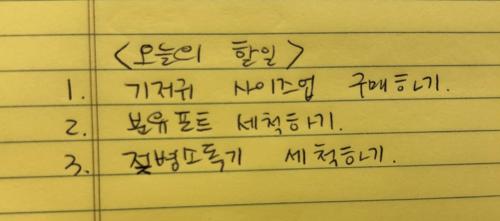 <오늘의 할일>
1. 기저귀 사이즈업 구매하기.
2. 분유포트 세척하기.
3. 젖병소독기 세척하기.